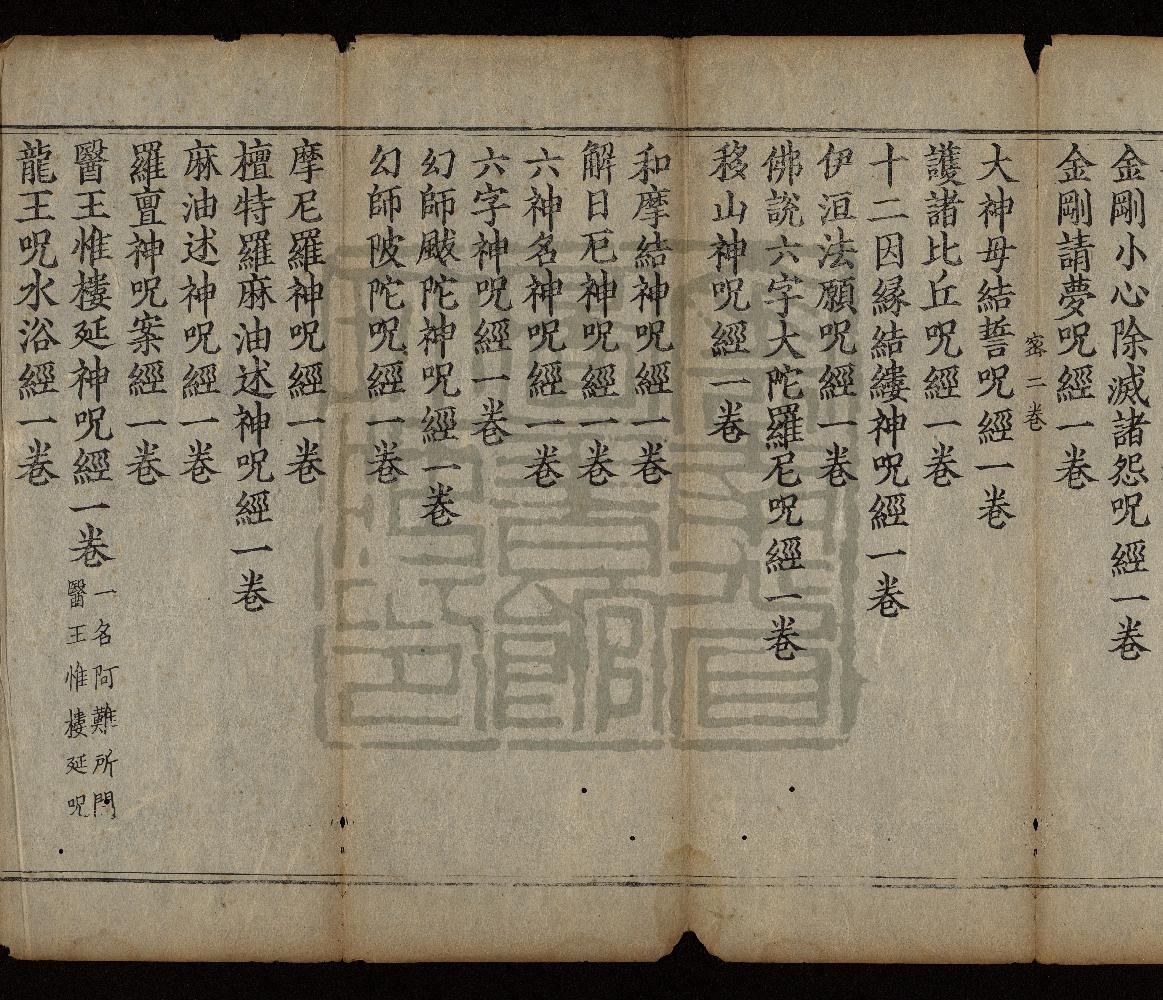 金剛小心除滅諸怨呪經一卷
金剛請夢呪經一卷
密二卷
大神毋結誓呪經一卷
護諸比丘呪經一卷
十二因縁結縷神呪經一卷
伊洹法願呪經一卷
佛說六字大陀羅尼呪經一卷
移山神呪經一卷
和摩結神呪經一卷
解日厄神呪經一卷
六神名神呪經一卷
六字神呪經一卷
幻師颰陀神呪經一卷
幻師陂陀呪經一卷
摩尼羅神呪經一卷
檀特羅麻油述神呪經一卷
麻油述神呪經一卷
羅亶神呪案經一卷
醫王惟樓延神呪經一卷
一名阿難所問
醫王惟樓延呪
龍王呪水浴經一卷